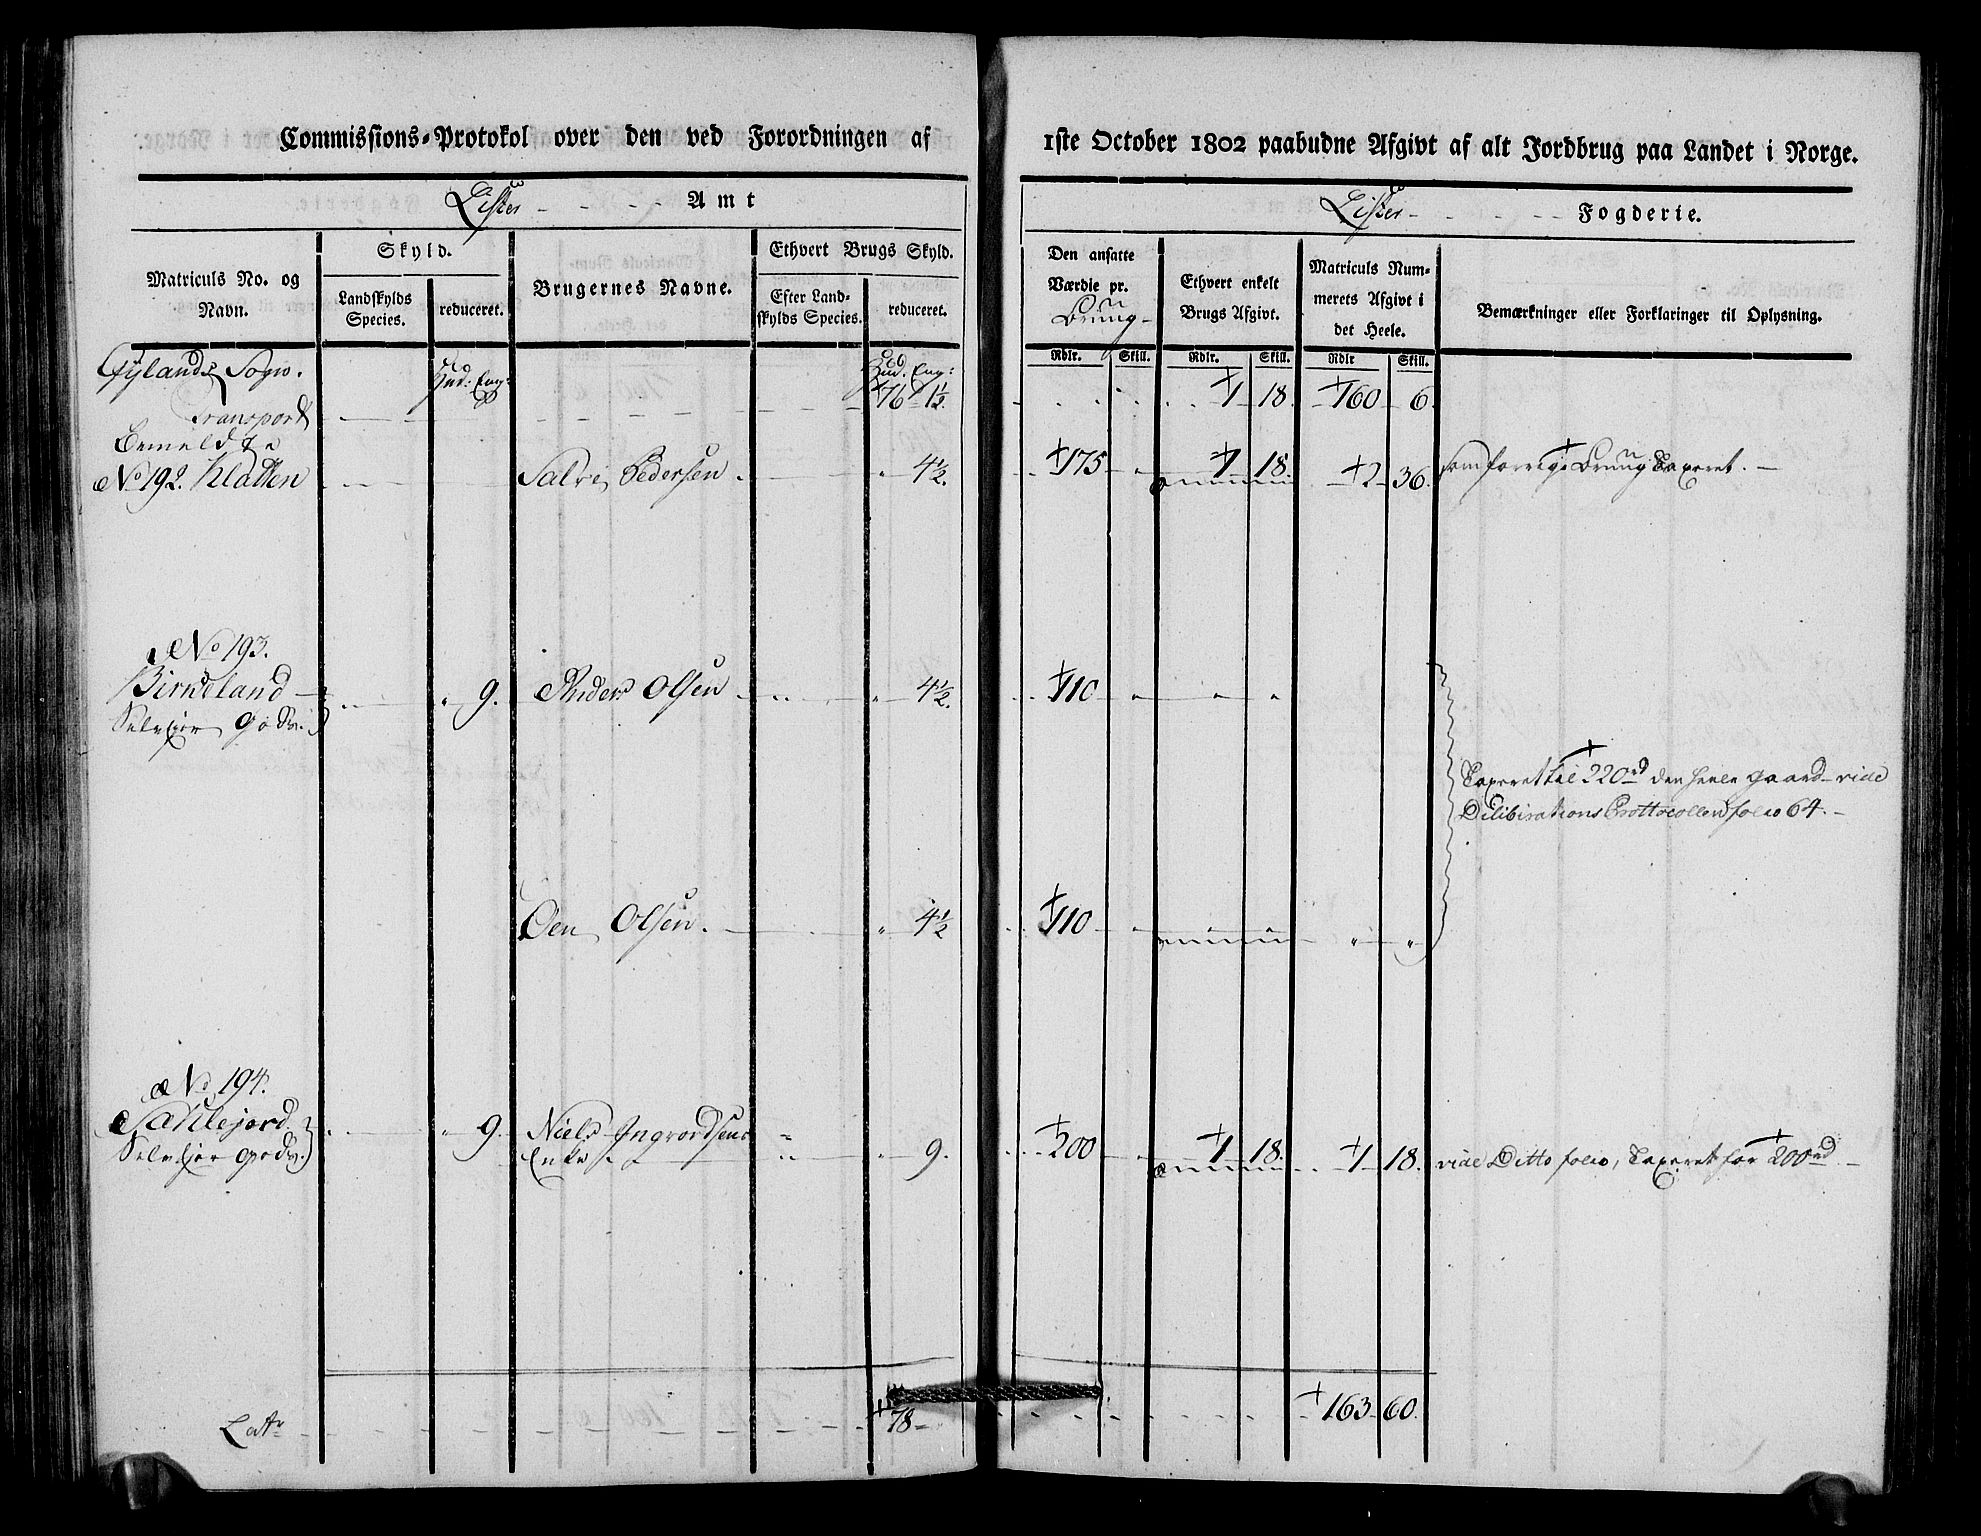 Commissions-Protokol over den ved Forordningen af
1ste October 1802 paabudne Afgivt af alt Jordbrug paa Landet i Norge.
Lister Amt
Lister Fogderie.
Matriculs No. og Navn.
Skyld.
Landskylds Species.
reduceret.
Brugernes Navne.
Ethvert Brugs Skyld.
Efter Landskylds Species.
reduceret.
Den ansatte Værdie pr. Brug
Ethvert enkelt Brugs Afgivt.
Matriculs Nummerets Afgivt i det Heele.
Bemærkninger eller Forklaringer til Oplysning.
Rdlr. Skill. Rdlr. Skill. Rdlr Skill.
Gylands Sogn. Hud: Eng: Hud. Eng:
Transport 76 1½. 1 18. 160 6.
Bemeldte
No 192. Kladten Salvi Pedersen 4½. 175 1 18. 2 36. som forrige Brug Taxeret.
No 193.
Birkeland 9. Anders Olsen 4½. 110
Selveier Gods.
Taxeret til 220rd den heele gaard vide
Delibirations Prottocollen folio 64.
Oen Olsen. 4½ 110
No 194.
Sæhlejord 9. Niels Ingvordsens 9. 200 1 18. 1 18. vide Ditto folio, Taxeret for 200rd
Selveier Gods. Enke
Latr 78 163 60.